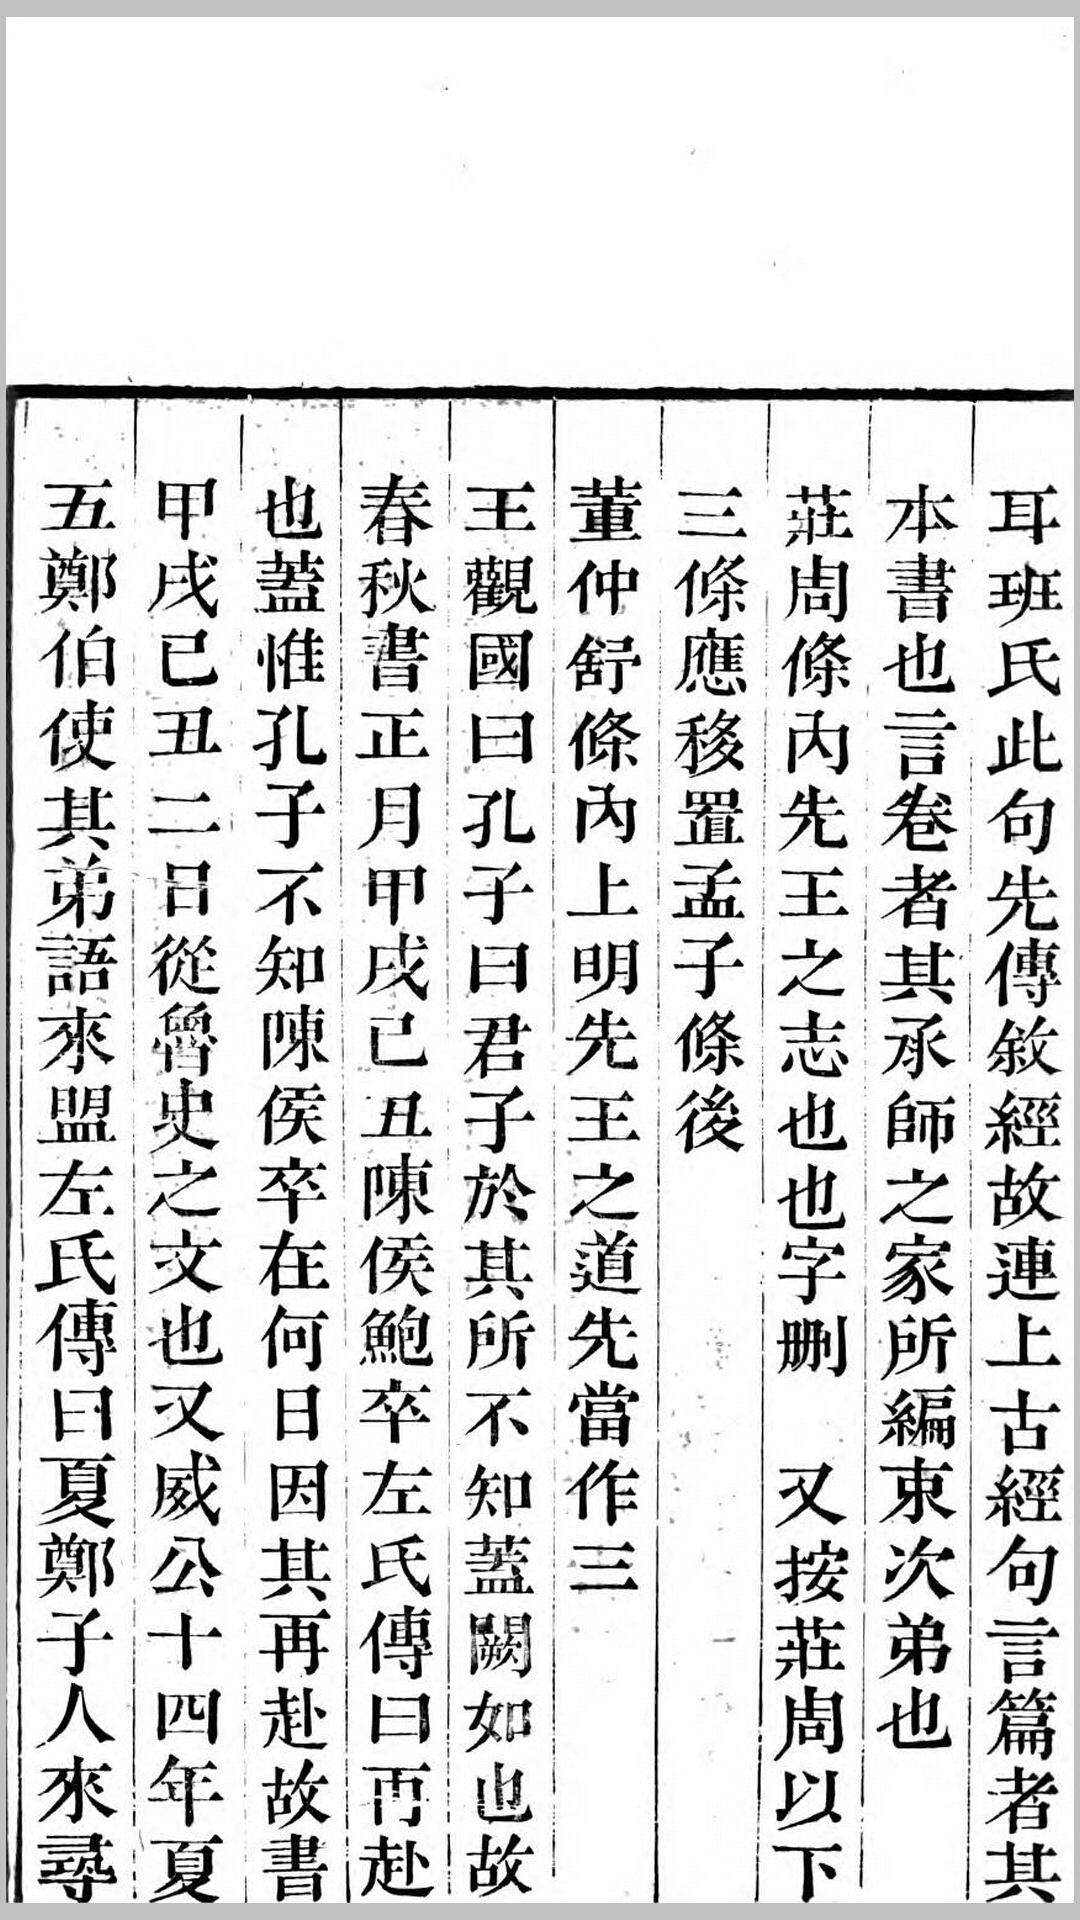 耳班氏此句先傳敘經故連上古經句言篇者其
本書也言卷者其承師之家所編束次弟也
莊周條內先王之志也也字刪　又按莊周以下
三條應移置孟子條後
董仲舒條內上明先王之道先當作三
王觀國曰孔子曰君子於其所不知蓋闕如也故
春秋書正月甲戌己丑陳侯鮑卒左氏傳曰再赴
也蓋惟孔子不知陳侯卒在何日因其再赴故書
甲戌己丑二日從魯史之文也又威公十四年夏
五鄭伯使其弟語來盟左氏傳曰夏鄭子人來尋